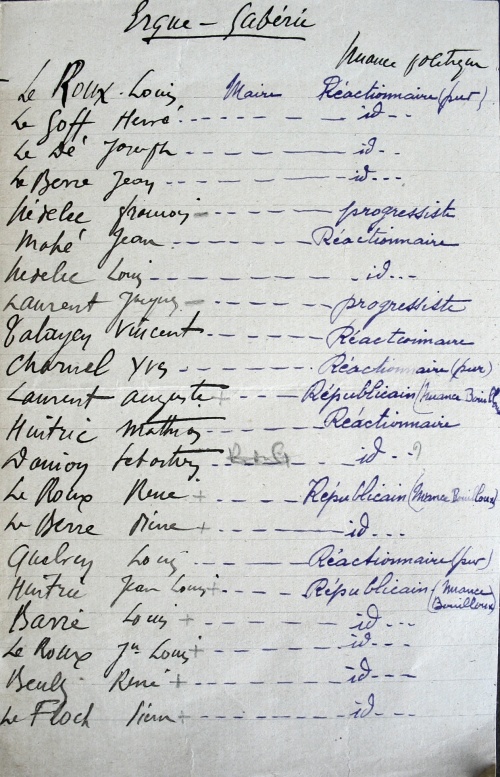 Ergue-Gabéric
Nuance politique
Le Roux Louis Maire Réactionnaire (pur)
Le Goff Hervé id
Le Dé Joseph id
Le Berre Jean id
Nédelec François progressiste
Mahé Jean Réactionnaire
Nédelec Louis id
Laurent Jacques progressiste
Tatayen Vincent Réactionnaire
Charuel Yves Réactionnaire (pur)
Laurent Auguste + Républicain (Nuance Bouilloux)
Huitric Mathias Réactionnaire
id ?
Le Roux René + Républicain (Nuance Bouilloux)
Le Berre Pierre + id
Louis Réactionnaire (pur)
Huitric Jean Louis + Républicain (Nuance Bouilloux)
Barré Louis + id
Le Roux Jn Louis + id
René + id
Le Floch Pierre + id